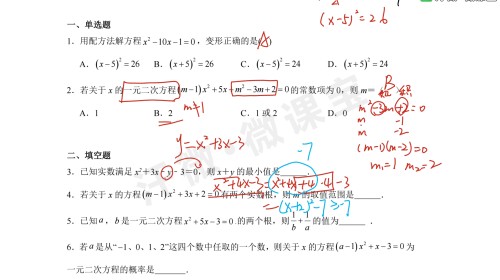 (x-5)²=26
一、单选题
1. 用配方法解方程 x²-10x-1=0，变形正确的是( A )
A. (x-5)²=26 B. (x+5)²=26 C. (x-5)²=24 D. (x+5)²=24
B
2. 若关于 x 的一元二次方程 (m-1)x²+5x+m²-3m+2=0 的常数项为 0，则 m=
A. 1 B. 2 C. 1 或 2 D. 0
m≠1
m²-3m+2=0
m -1
m -2
(m-1)(m-2)=0
m₁=1 m₂=2
y=x²+3x-3
-7
二、填空题
3. 已知实数满足 x²+3x-y-3=0，则 x+y 的最小值是
x²+4x-3=x²+4x+4-4-3
4. 若关于 x 的方程 (m-1)x²+3x+2=0 有两个实数根，则 m 的取值范围是
=(x+2)²-7≥-7
5. 已知 a，b 是一元二次方程 x²+5x-3=0 的两个根，则 1/b+1/a 的值为
6. 若 a 是从“-1、0、1、2”这四个数中任取的一个数，则关于 x 的方程 (a-1)x²+x-3=0 为
一元二次方程的概率是